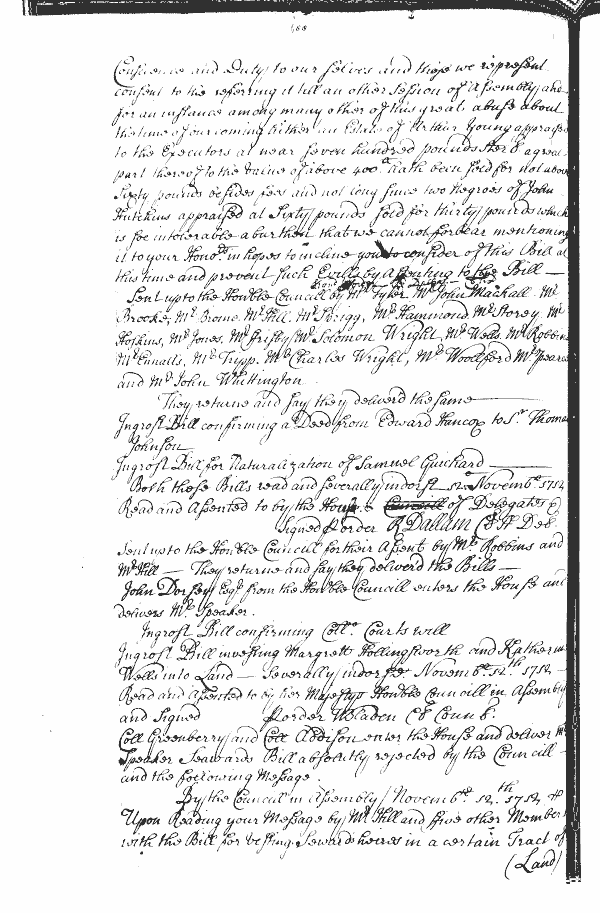 Conscience and Duty to our selves and those we represent
consent to the referring it till an other Session of Assembly and
for an instance among many other of this great abuse about
the time of our coming hither an Estate of Arthur Young appraised
to the Executors at near seven hundred pounds Ster a great
part thereof to the value of above 400 hath been sold for not above
Sixty pounds besides fees and not long since two Negroes of John
Hutchins appraised at Sixty pounds sold for thirty pounds which
is soe intolerable a burthen that we cannot forbear mentioning
it to your Hono.rs in hopes to incline you to consider of this Bill at
this time and prevent such Evills by Assenting to the Bill —
Sent up to the Honble Councill by Mr Tyler Mr John Mackall Mr
Brooke, Mr Brome Mr Hill, Mr Sprigg, Mr Hammond Mr Storey Mr
Hoskins, Mr Jones, Mr Frisby Mr Solomon Wright, Mr Wells, Mr Robbins
Mr Ennalls, Mr Tripp, Mr Charles Wright, Mr Woolford Mr Spearce
and Mr John Whittington
They returne and say they deliverd the same
Ingrost Bill confirming a Deed from Edward Hancox to Sr Thomas
Johnson
Ingrost Bill for Naturalization of Samuel Guichard
Both those Bills read and severally indorst 12 Novemb.r 1712
Read and Assented to by the House Councill of Delegates
Signed P order R Dallam Cl H Del
Sent up to the Honble Councill for their Assent by Mr Robbins and
Mr Hill — They returne and say they deliverd the Bills —
John Dorsey Esqr from the Honble Councill enters the House and
delivers Mr Speaker.
Ingrost Bill confirming Coll.o Courts will
Ingrost Bill investing Margrett Hollingsworth and Katherin
Wells into Land — Severally indorst Novemb.r 12th 1712 —
Read and Assented to by her Majestys Honble Councill in Assembly
and Signed P order W Bladen Cl Coun.
Coll Greenberry and Coll Addison enter the House and deliver Mr
Speaker Sewards Bill absolutely rejected by the Councill
and the following Message.
By the Council in Assembly Novemb.r 12th 1712
Upon Reading your Message by Mr Hill and five other Members
with the Bill for vesting Sewards heires in a certain Tract of
(Land)